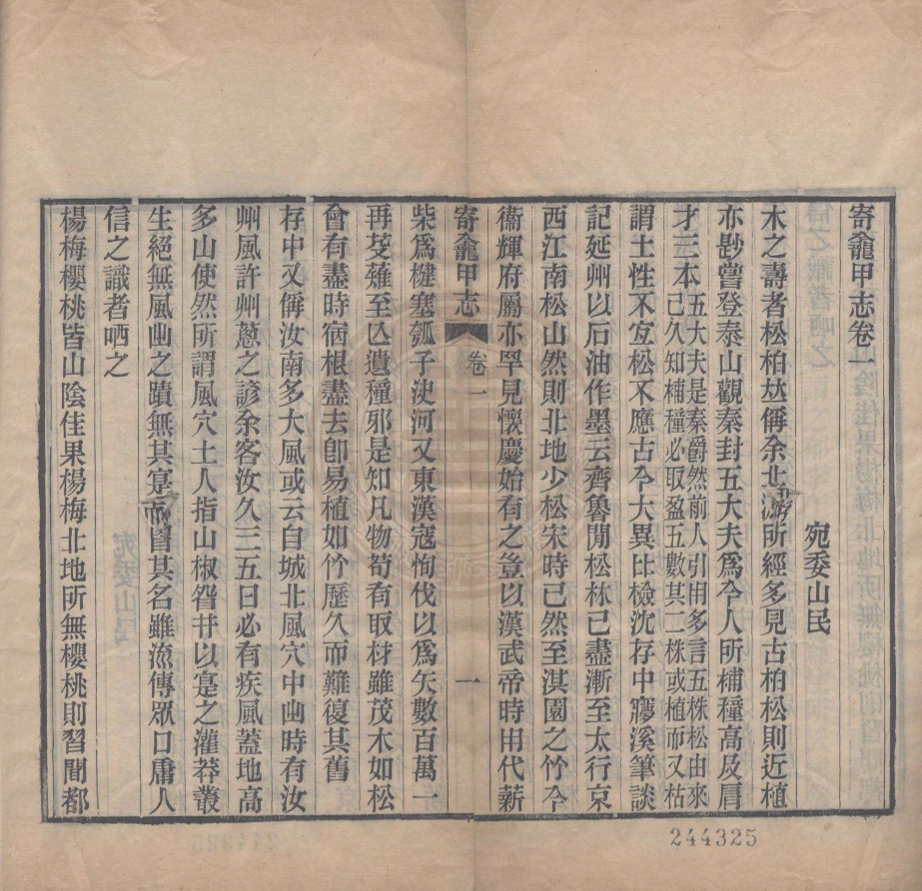 寄龕甲志卷一
宛委山民
木之壽者松柏𠀤偁余北游所經多見古柏松則近植
亦尟嘗登泰山觀秦封五大夫爲今人所補種高及肩
才三本五大夫是秦爵然前人引用多言五株松由來已久知補種必取盈五數其二株或植而又枯
謂土性不宜松不應古今大異比檢沈存中夢溪筆談
記延州以石油作墨云齊魯閒松林已盡漸至太行京
西江南松山然則北地少松宋時已然至淇園之竹今
衞輝府屬亦罕見懷慶始有之豈以漢武帝時用代薪
寄龕甲志 卷一 一
柴爲楗塞瓠子決河又東漢寇恂伐以爲矢數百萬一
再芟薙至亾遺種邪是知凡物苟有取材雖茂木如松
會有盡時宿根盡去卽易植如竹歷久而難復其舊
存中又偁汝南多大風或云自城北風穴中出時有汝
州風許州蔥之諺余客汝久三五日必有疾風蓋地高
多山使然所謂風穴土人指山椒眢井以寔之灌莽叢
生絕無風出之蹟無其寔而冒其名雖流傳眾口庸人
信之識者哂之
楊梅櫻桃皆山陰佳果楊梅北地所無櫻桃則習聞都
244325